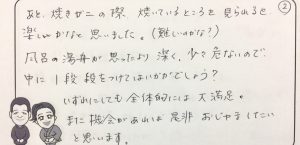 ②
あと、焼きガニの際、焼いているところを見られると
楽しいかなと思いました。(難しいのかな?)
風呂の湯舟が思ったより深く、少々危ないので、
中に1段段をつけてはいかがでしょう?
いずれにしても全体的には大満足。
また機会があれば是非おじゃましたい
と思います。